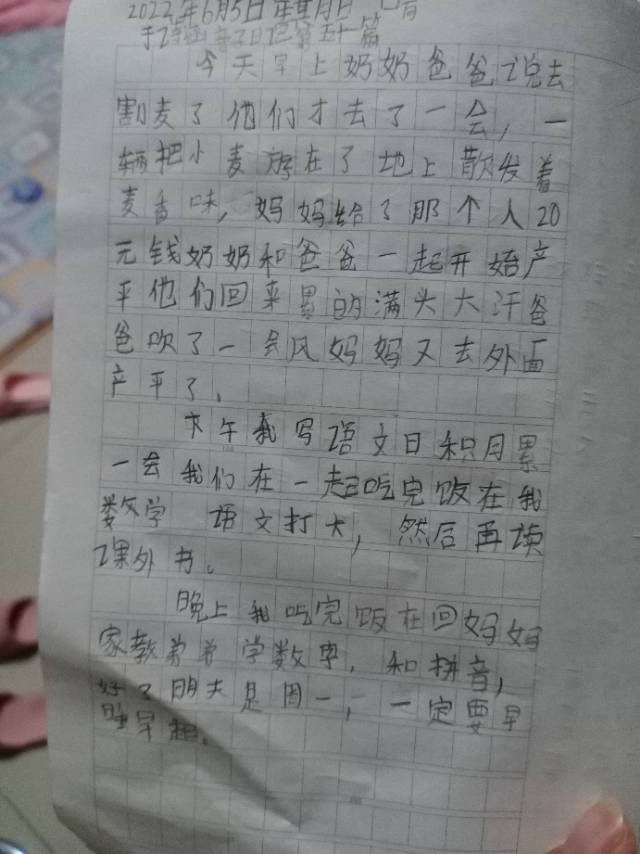 2022年6月5日 星期日 晴
日记第五十篇
今天早上奶奶爸爸说去
割麦了他们才去了一会，一
辆把小麦放在了地上散发着
麦香味，妈妈给了那个人20
元钱奶奶和爸爸一起开始产
平他们回来累的满头大汗爸
爸吹了一会风妈妈又去外面
产平了.
下午我写语文日积月累
一会我们在一起吃完饭在我
数学 语文打大，然后再读
课外书。
晚上我吃完饭在回妈妈
家教弟弟学数字，和拼音，
好了明天是周一，一定要早
睡早起.